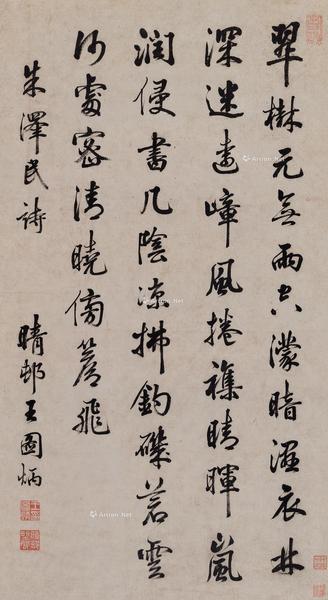 翠樾元無雨空濛暗溼衣林
深迷遠嶂風捲襍晴暉嵐
潤侵書几陰涼拂釣磯若雲
何處密清曉傍簷飛
朱澤民詩 晴邨王圖炳
Artron.Net